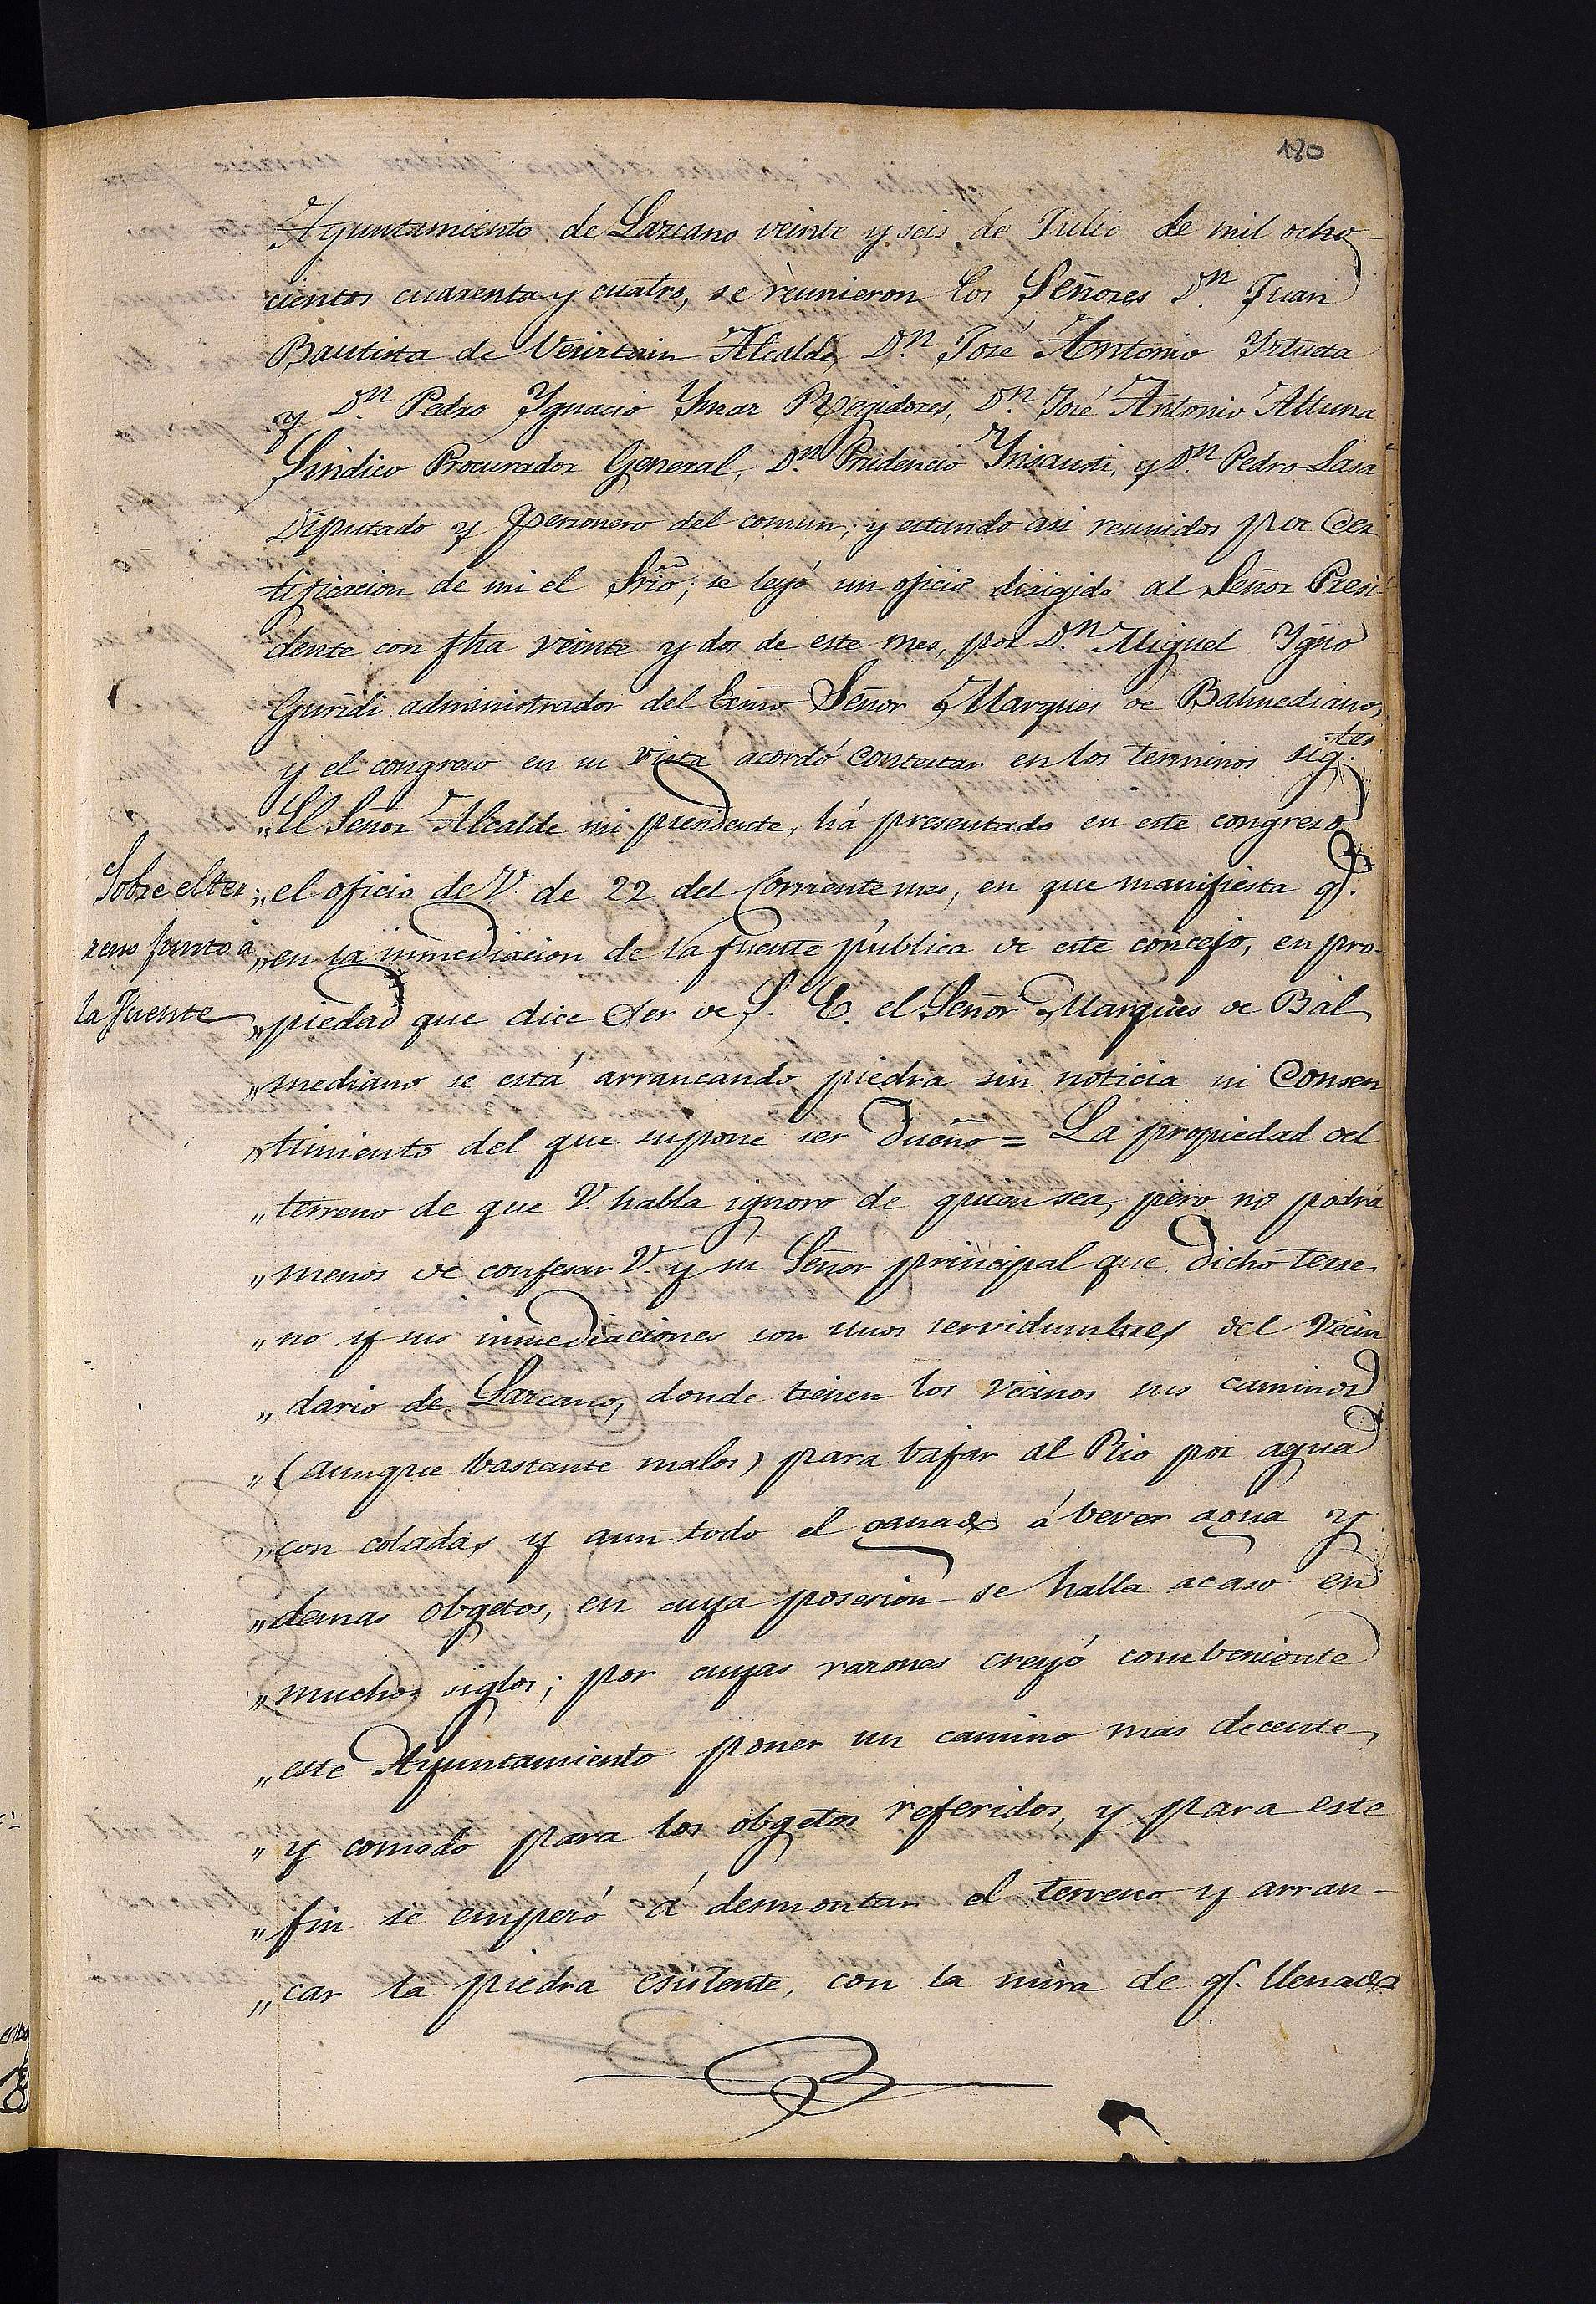 180
Ayuntamiento de Lazcano veinte y seis de Julio de mil ocho-
cientos cuarenta y cuatro, se reunieron los Señores Dn. Juan
Bautista de Alcalde, Dn. José Antonio Yztueta
y Dn Pedro Ygnacio Ymaz Regidores, Dn. José Antonio Altuna
Sindico Procurador General, Dn. Prudencio Ynsausti, y Dn Pedro Lasa
Diputado y Personero del comun; y estando asi reunidos por Cer
tificacion de mi el Srio; se leyó un oficio dirigido al Señor Presi-
dente con fha veinte y dos de este mes, por Dn Miguel Ygno
Guridi administrador del Exmo Señor Marques de Balmediano,
y el congreso en su vista acordó contestar en los terminos sigtes.
„El Señor Alcalde mi presidente, há presentado en este congreso
Sobre el ter-
reno junto à
la Fuente
„el oficio de V. de 22 del Corriente mes, en que manifiesta q.
„en la inmediacion de la fuente pública de este concejo, en pro-
„piedad que dice ser de S. E. el Señor Marques de Bal
„mediano se está arrancando piedra sin noticia ni Consen
„timiento del que supone ser Dueño = La propiedad del
„terreno de que V. habla ignoro de quien sea, pero no podrá
„menos de confesar V. y su Señor principal que dicho terre-
„no y sus inmediaciones son unos servidumbres del Vecin
„dario de Lazcano, donde tienen los Vecinos sus caminos
„(aunque bastante malos) para bajar al Rio por agua
„con coladas y aun todo el ganado á bever agua y
„demas obgetos, en cuya posesion se halla acaso en
„muchos siglos; por cuyas razones creyó combeniente
„este Ayuntamiento poner un camino mas decente,
„y comodo para los obgetos referidos, y para este
„fin se empezó á desmontar el terreno y arran-
„car la piedra esistente, con la mira de q. llenada